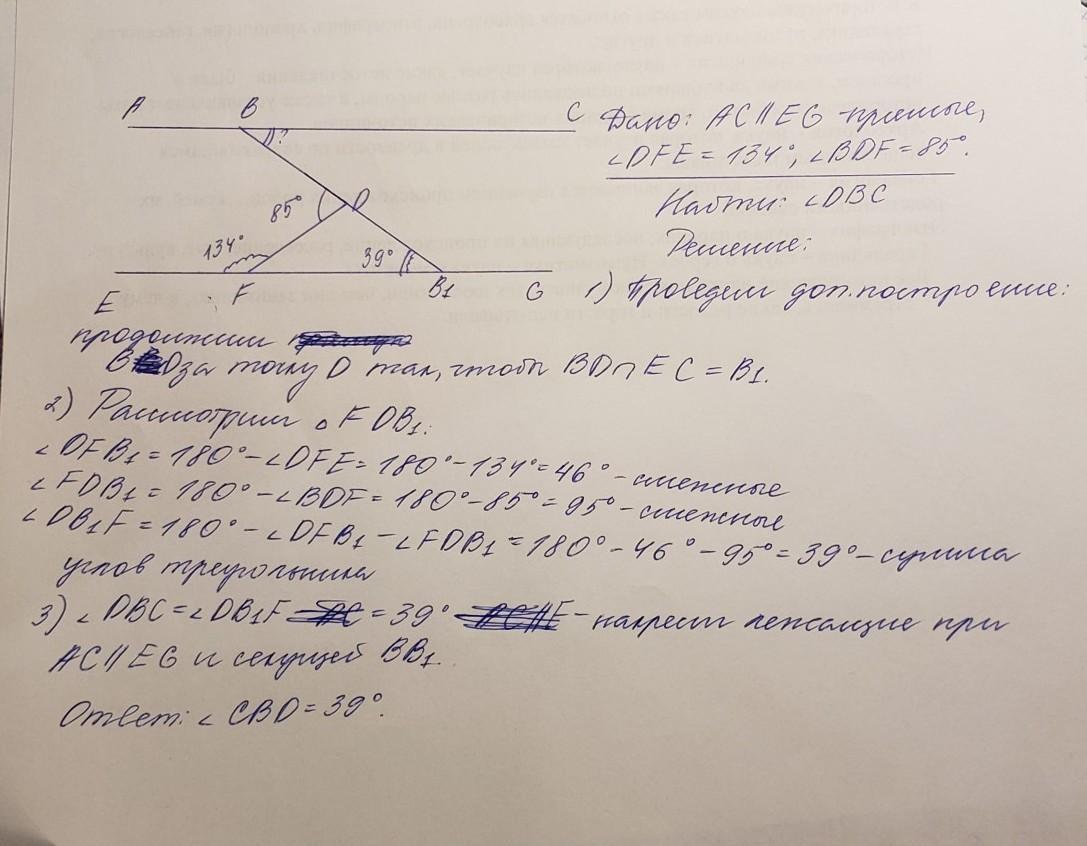 A B C
?
85° D
134° 39°
E F B1 G
Дано: AC∥EG - прямые,
∠DFE = 134°, ∠BDF = 85°.
Найти: ∠DBC
Решение:
1) Проведем доп. построение:
продолжим
BD за точку D так, чтобы BD∩EG = B1.
2) Рассмотрим △FDB1:
∠DFB1 = 180° - ∠DFE = 180° - 134° = 46° - смежные
∠FDB1 = 180° - ∠BDF = 180° - 85° = 95° - смежные
∠DB1F = 180° - ∠DFB1 - ∠FDB1 = 180° - 46° - 95° = 39° - сумма
углов треугольника
3) ∠DBC = ∠DB1F = 39° - накрест лежащие при
AC∥EG и секущей BB1.
Ответ: ∠CBD = 39°.